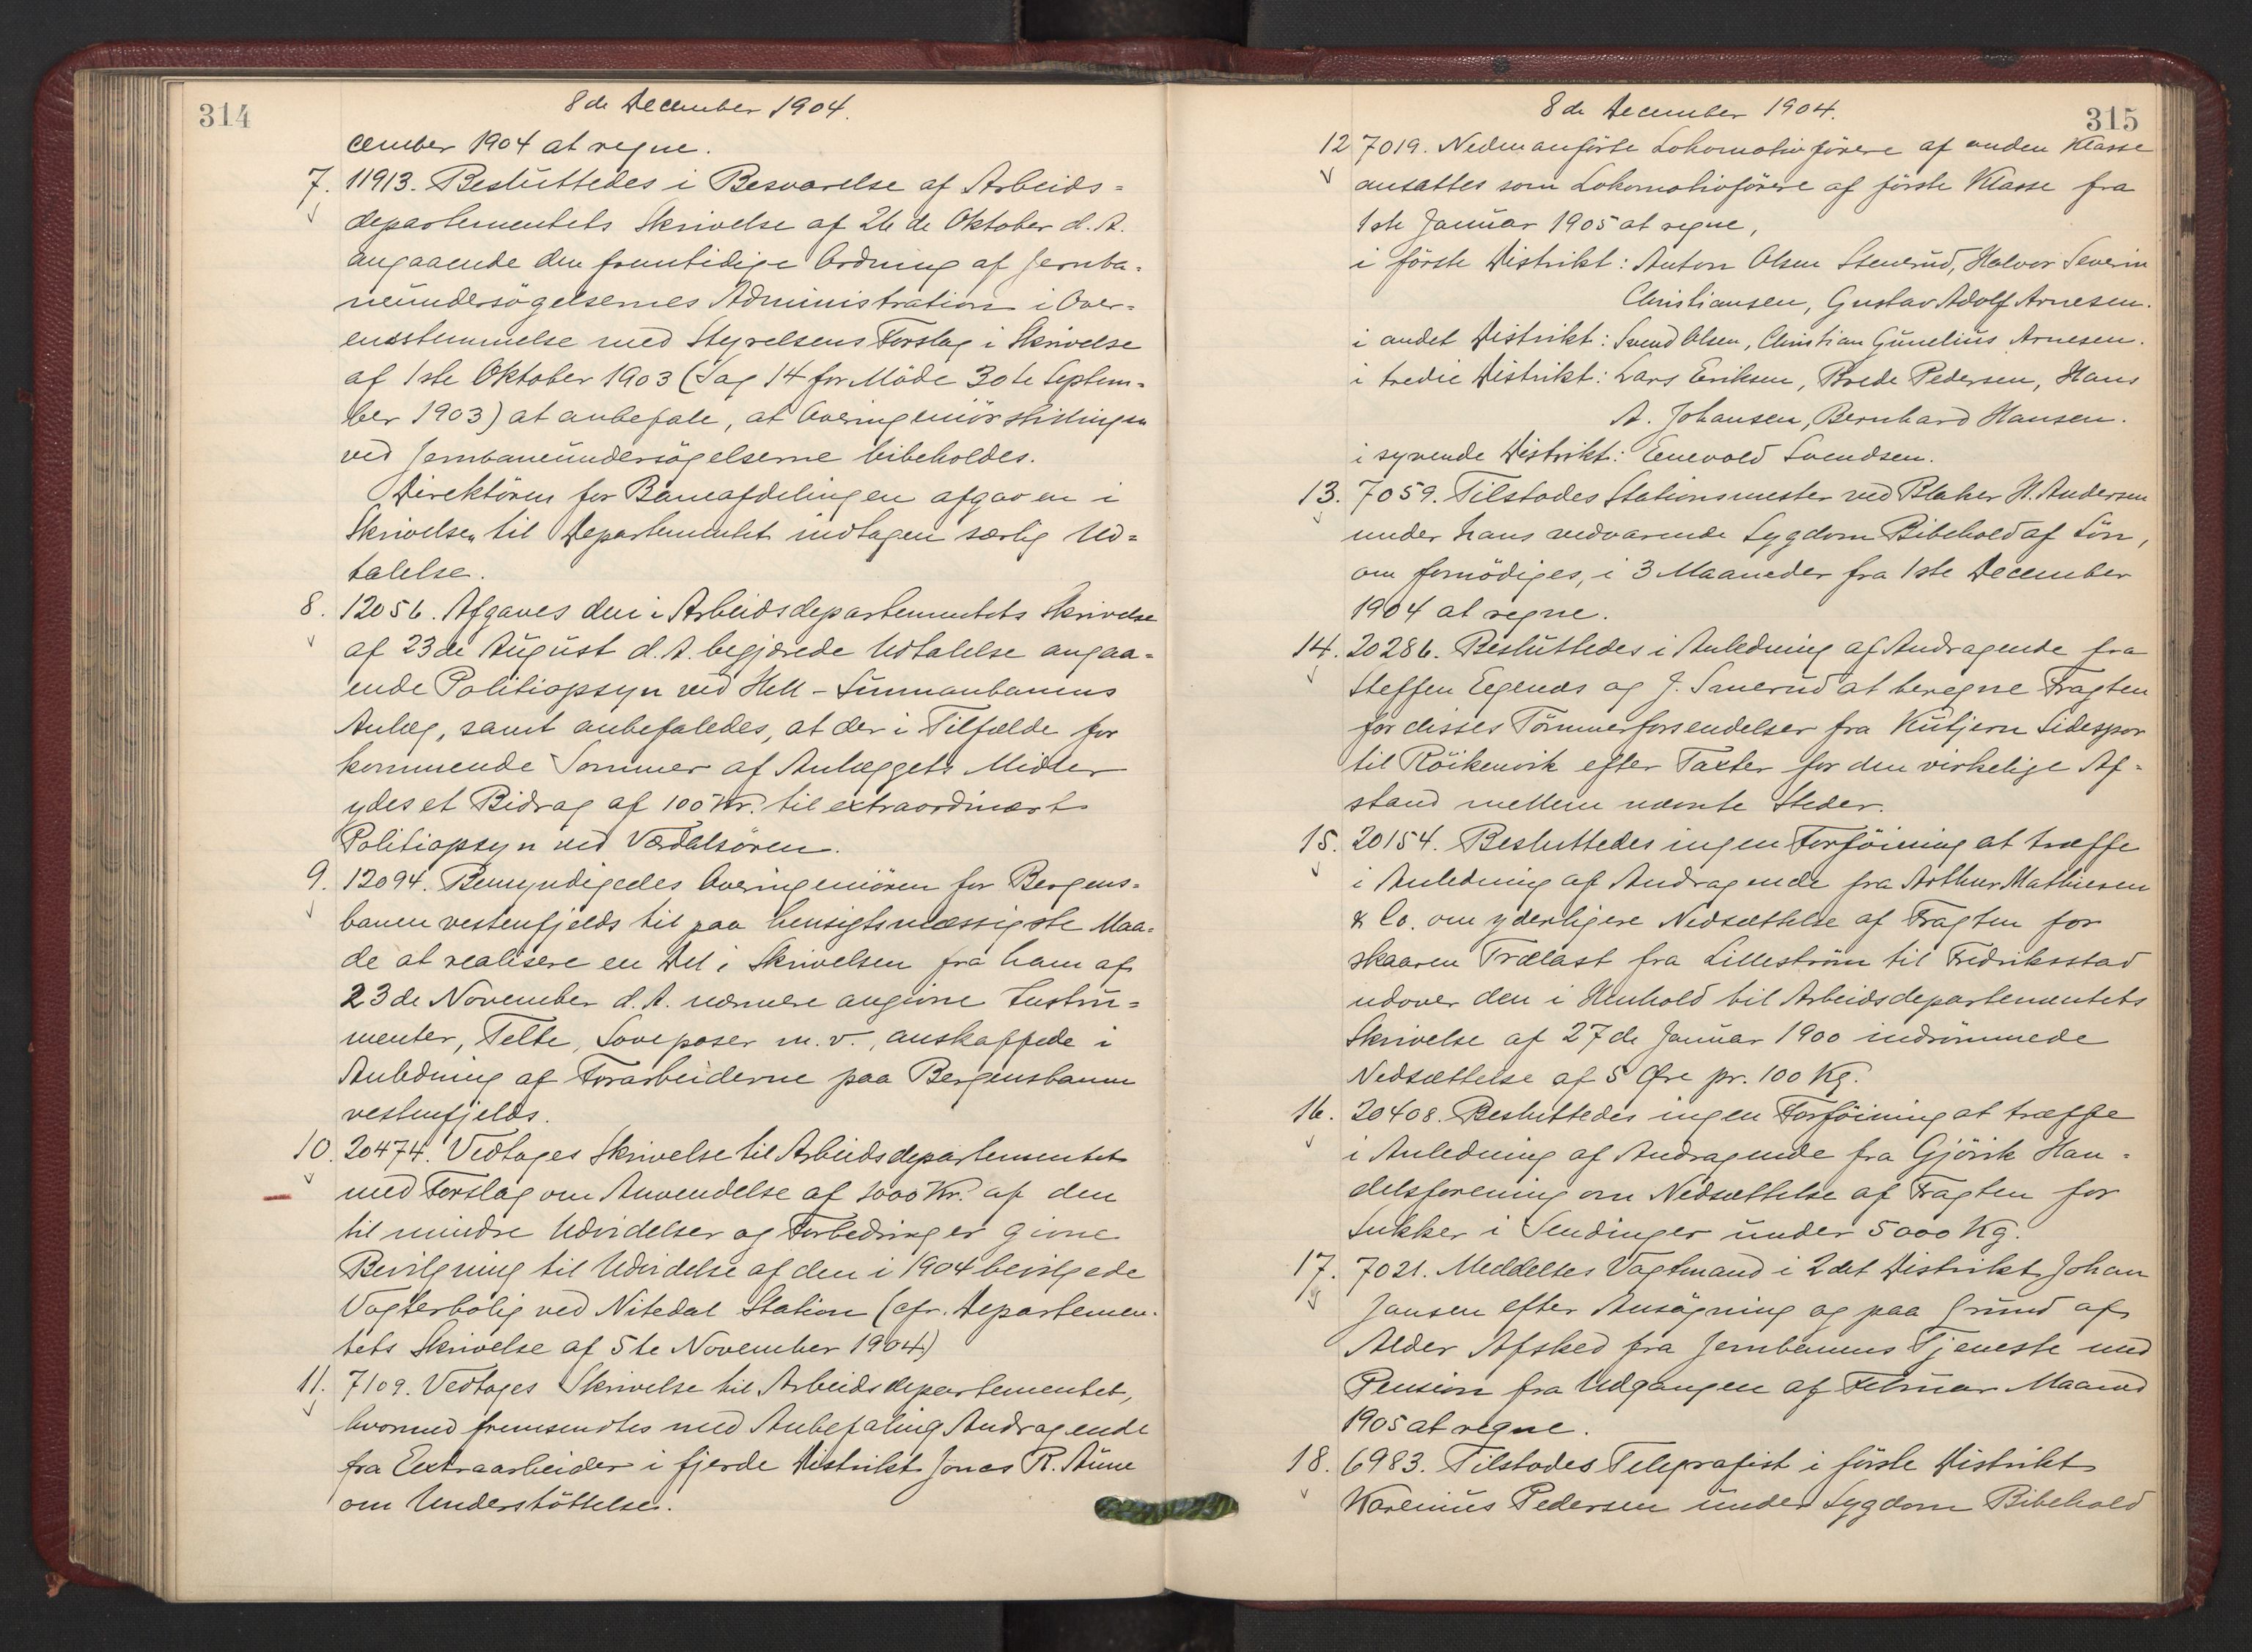 314
8de December 1904.
cember 1904 at regne.
7. 11913. Besluttedes i Besvarelse af Arbeids=
departementets Skrivelse af 26de Oktober d. A.
angaaende den fremtidige Ordning af Jernba=
neundersøgelsernes Administration i Over=
ensstemmelse med Styrelsens Forslag i Skrivelse
af 1ste Oktober 1903 (Sag 14 for Møde 30te Septem=
ber 1903) at anbefale, at Overingeniørstillingen
ved Jernbaneundersøgelserne bibeholdes.
Direktøren for Baneafdelingen afgav en i
Skrivelsen til Departementet indtagen særlig Ud=
talelse.
8. 12056. Afgaves den i Arbeidsdepartementets Skrivelse
af 23de August d. A. begjærede Udtalelse angaa=
ende Politiopsyn ved Hell-Sunnanbanens
Anlæg, samt anbefaledes, at der i Tilfælde for
kommende Sommer af Anlæggets Midler
ydes et Bidrag af 100 Kr. til extraordinært
Politiopsyn ved Værdalsøren.
9. 12094. Bemyndigedes Overingeniøren for Bergens=
banen vestenfjelds til paa hensigtsmæssigste Maa=
de at realisere en Del i Skrivelsen fra ham af
23de November d. A. nærmere angivne Instru=
menter, Telte, Soveposer m. v., anskaffede i
Anledning af Forarbeiderne paa Bergensbanen
vestenfjelds.
10. 20474. Vedtoges Skrivelse til Arbeidsdepartementet
med Forslag om Anvendelse af 1000 Kr. af den
til mindre Udvidelser og Forbedringer givne
Bevilgning til Udvidelse af den i 1904 bevilgede
Vogterbolig ved Nitedal Station (cfr. Departemen=
tets Skrivelse af 5te November 1904)
11. 7109. Vedtoges Skrivelse til Arbeidsdepartementet,
hvormed fremsendtes med Anbefaling Andragende
fra Extraarbeider i fjerde Distrikt Jonas R. Aune
om Understøttelse.
315
8de December 1904.
12 7019. Nedenanførte Lokomotivførere af anden Klasse
ansattes som Lokomotivførere af første Klasse fra
1ste Januar 1905 at regne,
i første Distrikt: Anton Olsen Stenerud, Halvor Severin
Christiansen, Gustav Adolf Arnesen.
i andet Distrikt: Svend Olsen, Christian Gunelius Arnesen.
i tredie Distrikt: Lars Eriksen, Brede Pedersen, Hans
A. Johansen, Bernhard Hansen.
i syvende Distrikt: Enevold Svendsen.
13. 7059. Tilstodes Stationsmester ved Blaker H. Andersen
under hans vedvarende Sygdom Bibehold af Løn,
om fornødiges, i 3 Maaneder fra 1ste December
1904 at regne.
14. 20286. Besluttedes i Anledning af Andragende fra
Steffen Egenæs og J. Smerud at beregne Fragten
for disses Tømmerforsendelser fra Kutjern Sidespor
til Røikenvik efter Taxter for den virkelige Af=
stand mellem nævnte Steder.
15. 20154. Besluttedes ingen Forføining at træffe
i Anledning af Andragende fra Arthur Mathiesen
& Co. om yderligere Nedsættelse af Fragten for
skaaren Trælast fra Lillestrøm til Fredriksstad
udover den i Henhold til Arbeidsdepartementets
Skrivelse af 27de Januar 1900 indrømmede
Nedsættelse af 5 Øre pr. 100 Kg.
16. 20408. Besluttedes ingen Forføining at træffe
i Anledning af Andragende fra Gjøvik Han=
delsforening om Nedsættelse af Fragten for
Sukker i Sendinger under 5000 Kg.
17. 7021. Meddeltes Vagtmand i 2det Distrikt Johan
Jansen efter Ansøgning og paa Grund af
Alder Afsked fra Jernbanens Tjeneste med
Pension fra Udgangen af Februar Maaned
1905 at regne.
18. 6983. Tilstodes Telegrafist i første Distrikt
Karenius Pedersen under Sygdom Bibehold